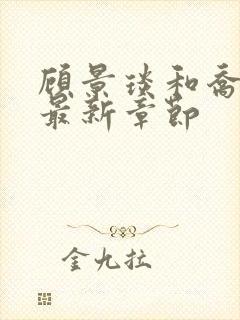 顾景琰和乔
最新章节
金九拉